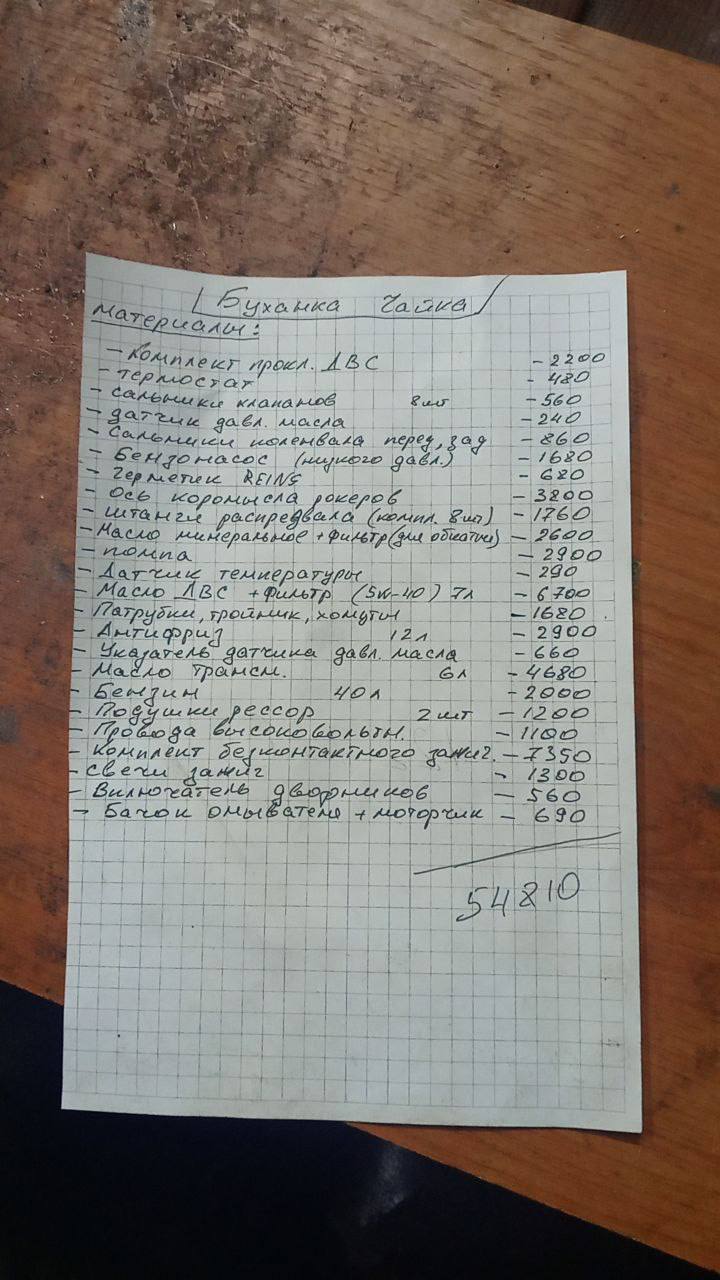 Буханка Чайка
Материалы:
- Комплект прокл. ДВС - 2200
- термостат - 480
- сальники клапанов 8 шт - 560
- датчик давл. масла - 240
- Сальники коленвала перед, зад - 860
- Бензонасос (низкого давл.) - 1680
- Герметик REINS - 680
- Ось коромысла рокеров - 3800
- штанги распредвала (компл. 8 шт) - 1760
- Масло минеральное + фильтр (для обкатки) - 2600
- помпа - 2900
- Датчик температуры - 290
- Масло ДВС + фильтр (5w-40) 7л - 6700
- Патрубки, тройник, хомуты - 1680
- Антифриз 12л - 2900
- Указатель датчика давл. масла - 660
- Масло трансм. 6л - 4680
- Бензин 40л - 2000
- Подушки рессор 2 шт - 1200
- Провода высоковольтн. - 1100
- Комплект безконтактного зажиг. - 7350
- свечи зажиг - 1300
- Включатель дворников - 560
- Бачок омывателя + моторчик - 690
54810